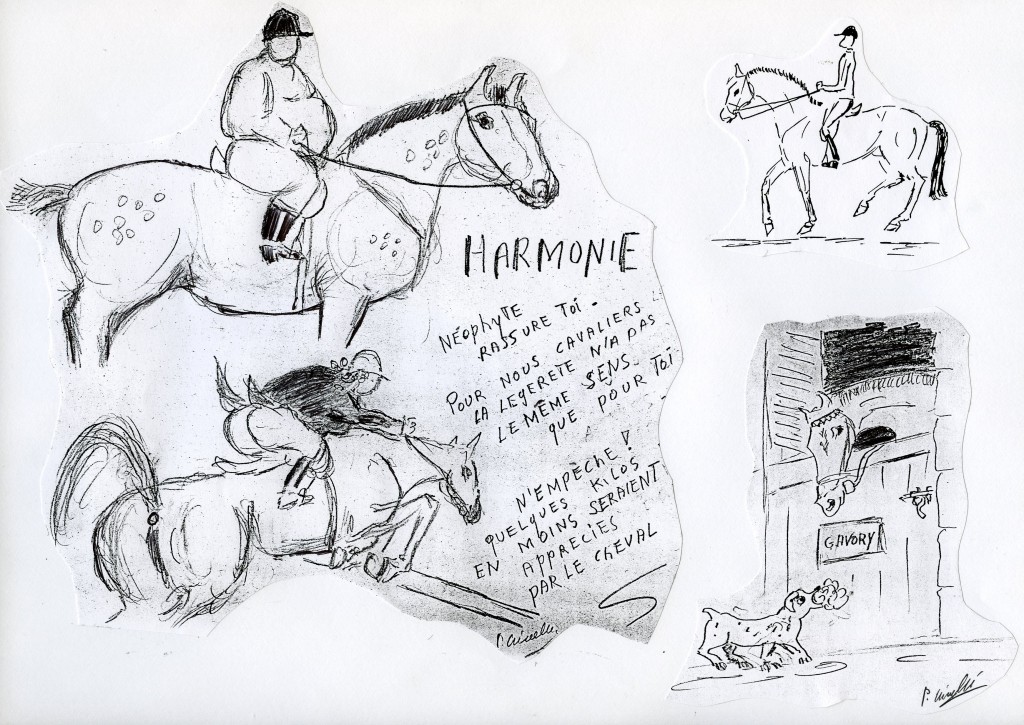 HARMONIE
NÉOPHYTE
RASSURE TOI -
POUR NOUS CAVALIERS
LA LEGERETE N'A PAS
LE MÊME SENS -
QUE POUR TOI
N'EMPÈCHE !
QUELQUES KILOS
EN MOINS SERAIENT
APPRECIES
PAR LE CHEVAL
GAVORY